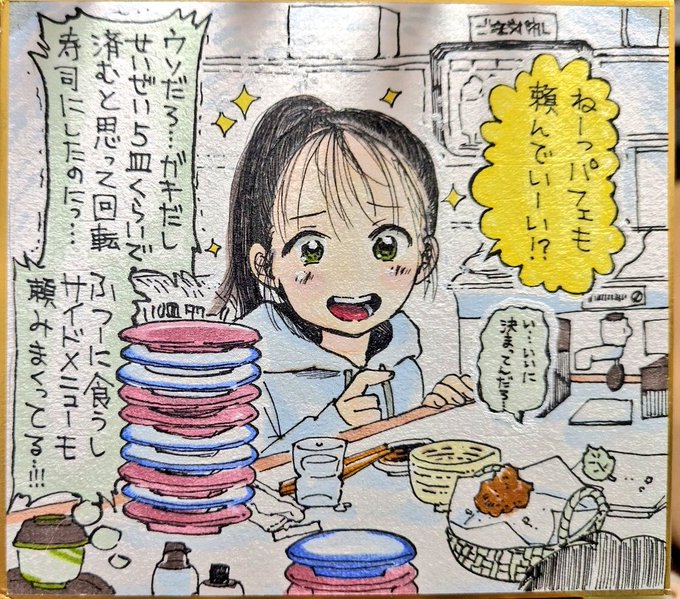 ねーっパフェも
頼んでいーい!?
い…いいに
決まってんだろ…
ウソだろ…ガキだし
せいぜい5皿くらいで
済むと思って回転
寿司にしたのにっ…
10皿タワー
ふつーに食うし
サイドメニューも
頼みまくってる…!!!